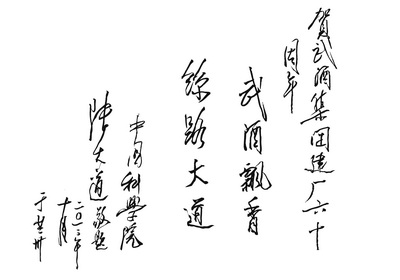 贺武酒集团建厂六十
周年
武酒飘香
絲路大道
中国科學院
陆大道敬题
二〇一二年
十月
于兰州